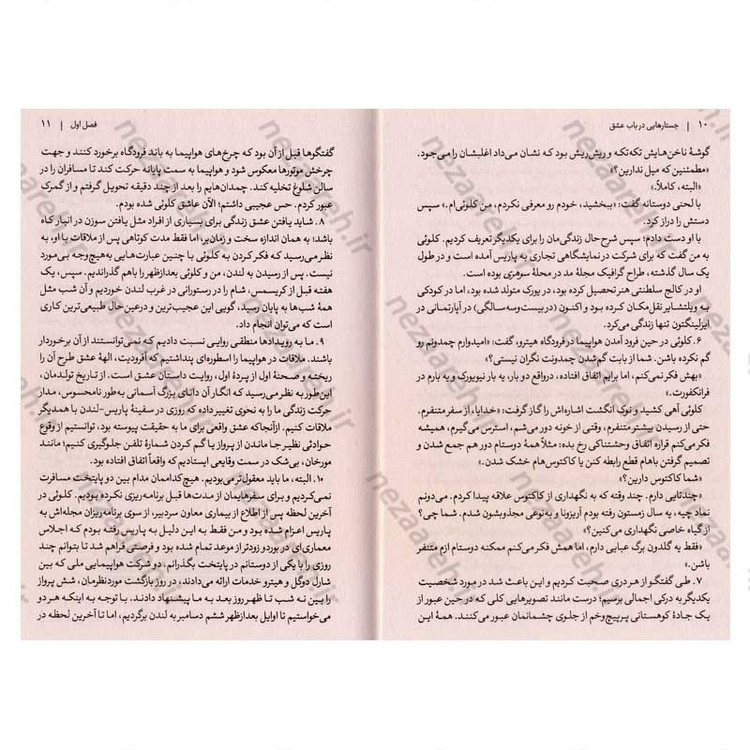 ۱۰ | جستارهایی در باب عشق
گوشهٔ ناخن‌هایش تکه‌تکه و ریش‌ریش بود که نشان می‌داد اغلبشان را می‌جود.
«مطمئنین که میل ندارین؟»
«البته، کاملاً.»
با لحنی دوستانه گفت: «ببخشید، خودم رو معرفی نکردم، من کلوئی‌ام.» سپس
دستش را دراز کرد.
با او دست دادم؛ سپس شرح حال زندگی‌مان را برای یکدیگر تعریف کردیم. کلوئی
به من گفت که برای شرکت در نمایشگاهی تجاری به پاریس آمده است و در طول
یک سال گذشته، طراح گرافیک مجلهٔ مد در محلهٔ سوهزی بوده است.
او در کالج سلطنتی هنر تحصیل کرده بود، در یورک متولد شده بود، اما در کودکی
به ویلتشایر نقل‌مکان کرده بود و اکنون (در بیست‌وسه سالگی) در آپارتمانی در
ایزلینگتون تنها زندگی می‌کرد.
۶. کلوئی در حین فرود آمدن هواپیما در فرودگاه هیترو، گفت: «امیدوارم چمدونتم رو
گم نکرده باشن. شما از بابت گم‌شدن چمدونت نگران نیستی؟»
«بهش فکر نمی‌کنم، اما برایم اتفاق افتاده، درواقع دو بار، یه بار نیویورک و یه بارم در
فرانکفورت.»
کلوئی آهی کشید و نوک انگشت اشاره‌اش را گاز گرفت: «خدایا، از سفر متنفرم.
حتی از رسیدن بیشتر متنفرم، وقتی از خونه دور می‌شم، استرس می‌گیرم، همه‌ش
فکر می‌کنم قراره اتفاق وحشتناکی رخ بده: مثلاً همهٔ دوستام دور هم جمع شدن و
تصمیم گرفتن باهام قطع رابطه کنن یا کاکتوس‌هام خشک شدن.»
«شما کاکتوس دارین؟»
«چندتایی دارم. چند وقته که به نگهداری از کاکتوس علاقه پیدا کردم. می‌دونم
نماد چیه، یه سال زمستون رفته بودم آریزونا و به‌نوعی مجذوبشون شدم. شما چی؟
از گیاه خاصی نگهداری می‌کنین؟»
«فقط یه گلدون برگ عبایی دارم، اما همش فکر می‌کنم ممکنه دوستام ازم متنفر
باشن.»
۷. طی گفتگو از هر دری صحبت کردیم و این باعث شد در مورد شخصیت
یکدیگر به درکی اجمالی برسیم؛ درست مانند تصویرهایی کلی که در حین عبور از
یک جادهٔ کوهستانی پرپیچ‌وخم از جلوی چشمانمان عبور می‌کنند. همهٔ این
فصل اول | ۱۱
گفتگوها قبل از آن بود که چرخ‌های هواپیما به باند فرودگاه برخورد کنند و جهت
چرخش موتورها معکوس شود و هواپیما به سمت پایانه حرکت کند تا مسافران را در
سالن شلوغ تخلیه کند. چمدان‌هایم را بعد از چند دقیقه تحویل گرفتم و از گمرک
عبور کردم. حس عجیبی داشتم؛ الآن عاشق کلوئی شده بودم.
۸. شاید یافتن عشق زندگی برای بسیاری از افراد مثل یافتن سوزن در انبار کاه
باشد؛ به همان اندازه سخت و زمان‌بر، اما فقط مدت کوتاهی پس از ملاقات با او، به
نظر می‌رسید که فکر کردن به کلوئی با چنین عبارت‌هایی به‌هیچ‌وجه بی‌مورد
نیست. پس از رسیدن به لندن، من و کلوئی بعدازظهر را باهم گذراندیم. سپس، یک
هفته قبل از کریسمس، شام را در رستورانی در غرب لندن خوردیم و آن شب مثل
همهٔ شب‌ها به پایان رسید، گویی این عجیب‌ترین و درعین‌حال طبیعی‌ترین کاری
است که می‌توان انجام داد.
۹. ما به رویدادها منطقی روایی نسبت دادیم که نمی‌توانستند از آن برخوردار
باشند. ملاقات در هواپیما را اسطوره‌ای پنداشتیم که آفرودیت، الههٔ عشق طرح آن را
ریخته و صحنهٔ اول از پردهٔ اول، روایت داستان عشق است. از تاریخ تولدمان،
این‌طور به نظر می‌رسید که انگار آن دانای بزرگ آسمانی به‌طور نامحسوس، مدار
حرکت زندگی ما را به نحوی تغییر داده که روزی در سفینهٔ پاریس-لندن با همدیگر
ملاقات کنیم. ازآنجاکه عشق واقعی برای ما به حقیقت پیوسته بود، توانستیم از وقوع
حوادثی نظیر جا ماندن از پرواز یا گم کردن شمارهٔ تلفن جلوگیری کنیم؛ مانند
مورخان، بی‌شک در سمت وقایعی ایستادیم که واقعاً اتفاق افتاده بود.
۱۰. البته، ما باید معقول‌تر می‌بودیم. هیچ‌کداممان مدام بین دو پایتخت مسافرت
نمی‌کردیم و برای سفرهایمان از مدت‌ها قبل برنامه‌ریزی نکرده بودیم. کلوئی در
آخرین لحظه پس از اطلاع از بیماری معاون سردبیر، از سوی برنامه‌ریزان مجله‌اش به
پاریس اعزام شده بود و من فقط به این دلیل به پاریس رفته بودم که اجلاس
معماری‌ای در بوردو زودتر از موعد تمام شده بود و فرصتی فراهم شد تا بتوانم چند
روزی را با یکی از دوستانم در پایتخت بگذرانم. دو شرکت هواپیمایی ملی که بین
شارل دوگل و هیترو خدمات ارائه می‌دادند، در روز بازگشت موردنظرمان، شش پرواز
را بین نه شب تا ظهر روز بعد به ما پیشنهاد دادند. با توجه به اینکه هر دو
می‌خواستیم تا اوایل بعدازظهر ششم دسامبر به لندن برگردیم، اما تا آخرین لحظه در
nezaareh.ir